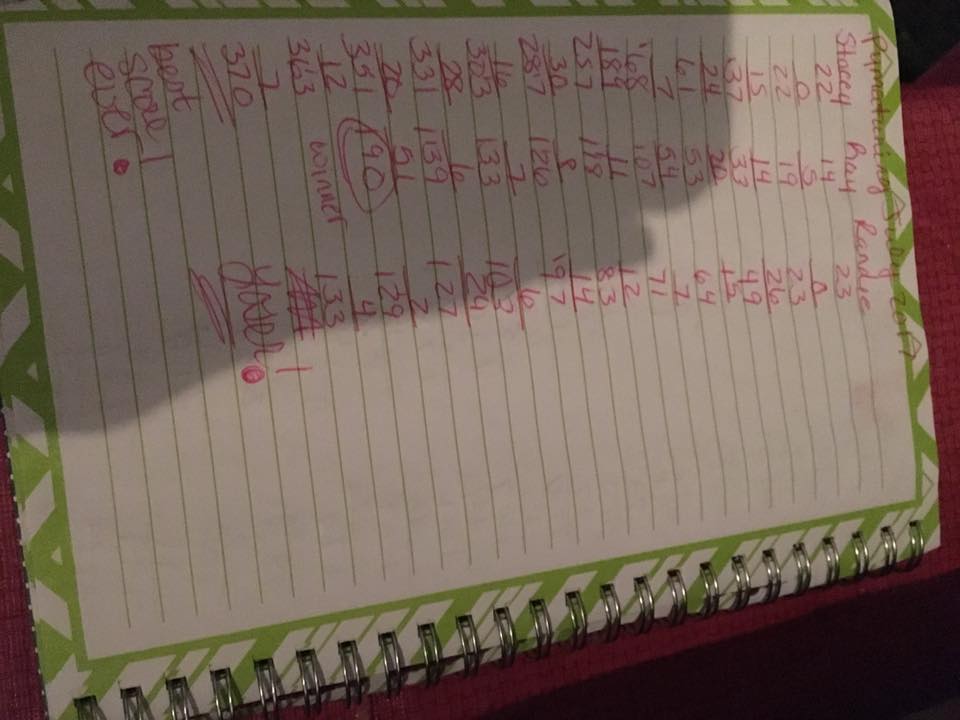 Pymatuning July 2017
Stacey Ray Randie
22 14 23
0 5 0
22 19 23
15 14 26
37 33 49
24 20 15
61 53 64
7 54 7
68 107 71
189 11 12
257 118 83
30 8 14
287 126 97
16 7 6
303 133 103
28 6 24
331 139 127
20 51 2
351 190 129
12 winner 4
363 133
7
370 loser!
best
score!
ever.